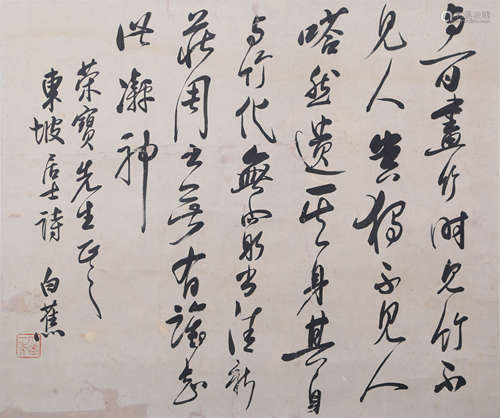 与可畫竹时見竹不
見人豈獨不見人
嗒然遺其身其身
与竹化無窮出清新
莊周世無有誰知
此凝神
荣寶先生正之
東坡居士詩 白蕉